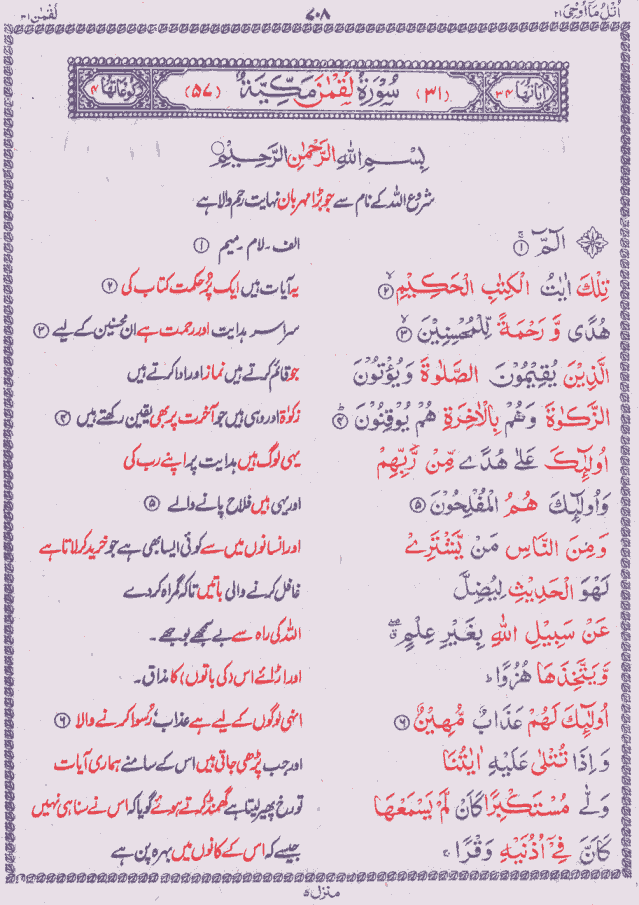 اُتْلُ مَآ اُوْحِیَ ٢١ ٧٠٨ لُقْمٰن ٣١
اٰیَاتُهَا ٣٤ (٣١) سُوْرَةُ لُقْمٰنَ مَكِّيَّةٌ (٥٧) رُكُوْعَاتُهَا ٤
بِسْمِ اللّٰهِ الرَّحْمٰنِ الرَّحِيْمِ
شروع اللہ کے نام سے جو بڑا مہربان نہایت رحم والا ہے
الٓمّٓ ۚ ﴿١﴾ الف ۔ لام ۔ میم ﴿١﴾
تِلْكَ اٰيٰتُ الْكِتٰبِ الْحَكِيْمِ ۙ ﴿٢﴾ یہ آیات ہیں ایک پُر حکمت کتاب کی ﴿٢﴾
هُدًى وَّ رَحْمَةً لِّلْمُحْسِنِيْنَ ۙ ﴿٣﴾ سراسر ہدایت اور رحمت ہے ان محسنین کے لیے ﴿٣﴾
الَّذِيْنَ يُقِيْمُوْنَ الصَّلٰوةَ وَيُؤْتُوْنَ جو قائم کرتے ہیں نماز اور ادا کرتے ہیں
الزَّكٰوةَ وَهُمْ بِالْاٰخِرَةِ هُمْ يُوْقِنُوْنَ ؕ ﴿٤﴾ زکوٰة اور وہی ہیں جو آخرت پر بھی یقین رکھتے ہیں ﴿٤﴾
اُولٰٓئِكَ عَلٰى هُدًى مِّنْ رَّبِّهِمْ یہی لوگ ہیں ہدایت پر اپنے رب کی
وَاُولٰٓئِكَ هُمُ الْمُفْلِحُوْنَ ﴿٥﴾ اور یہی ہیں فلاح پانے والے ﴿٥﴾
وَمِنَ النَّاسِ مَنْ يَّشْتَرِيْ اور انسانوں میں سے کوئی ایسا بھی ہے جو خرید کر لاتا ہے
لَهْوَ الْحَدِيْثِ لِيُضِلَّ غافل کرنے والی باتیں تاکہ گمراہ کر دے
عَنْ سَبِيْلِ اللّٰهِ بِغَيْرِ عِلْمٍ ۖ اللہ کی راہ سے بے سمجھے بوجھے ۔
وَّيَتَّخِذَهَا هُزُوًا ؕ اور اڑائے اس (کی باتوں) کا مذاق ۔
اُولٰٓئِكَ لَهُمْ عَذَابٌ مُّهِيْنٌ ﴿٦﴾ انہی لوگوں کے لیے ہے عذاب رسوا کرنے والا ﴿٦﴾
وَاِذَا تُتْلٰى عَلَيْهِ اٰيٰتُنَا اور جب پڑھی جاتی ہیں اس کے سامنے ہماری آیات
وَلّٰى مُسْتَكْبِرًا كَاَنْ لَّمْ يَسْمَعْهَا تو رخ پھیر لیتا ہے گھمنڈ کرتے ہوئے گویا کہ اس نے سنا ہی نہیں
كَاَنَّ فِيْٓ اُذُنَيْهِ وَقْرًا ۚ جیسے کہ اس کے کانوں میں بہرہ پن ہے
منزل ٥